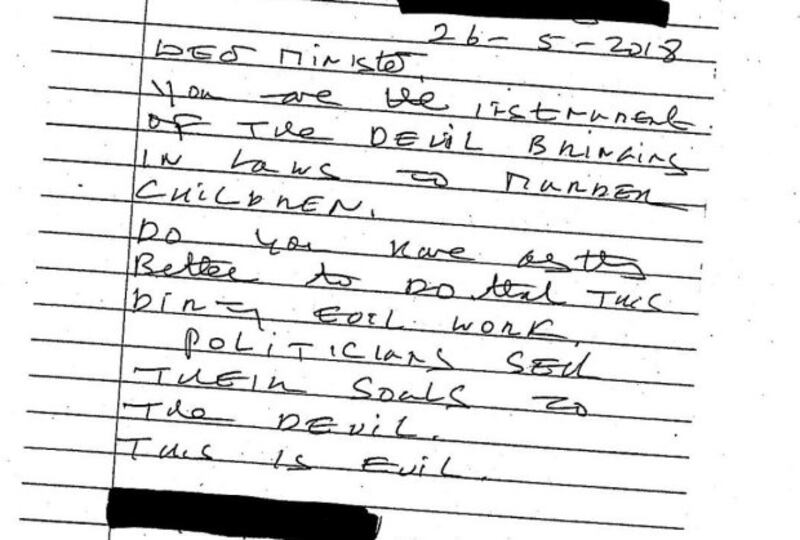 26-5-2018
DEO Minister,
You are the instrument
OF THE DEVIL BRINGING
IN LAWS TO MURDER
CHILDREN.
DO you have
Better to DO that THIS
DIRTY EVIL WORK.
POLITICIANS SELL
THEIR SOULS TO
THE DEVIL.
THIS IS EVIL.